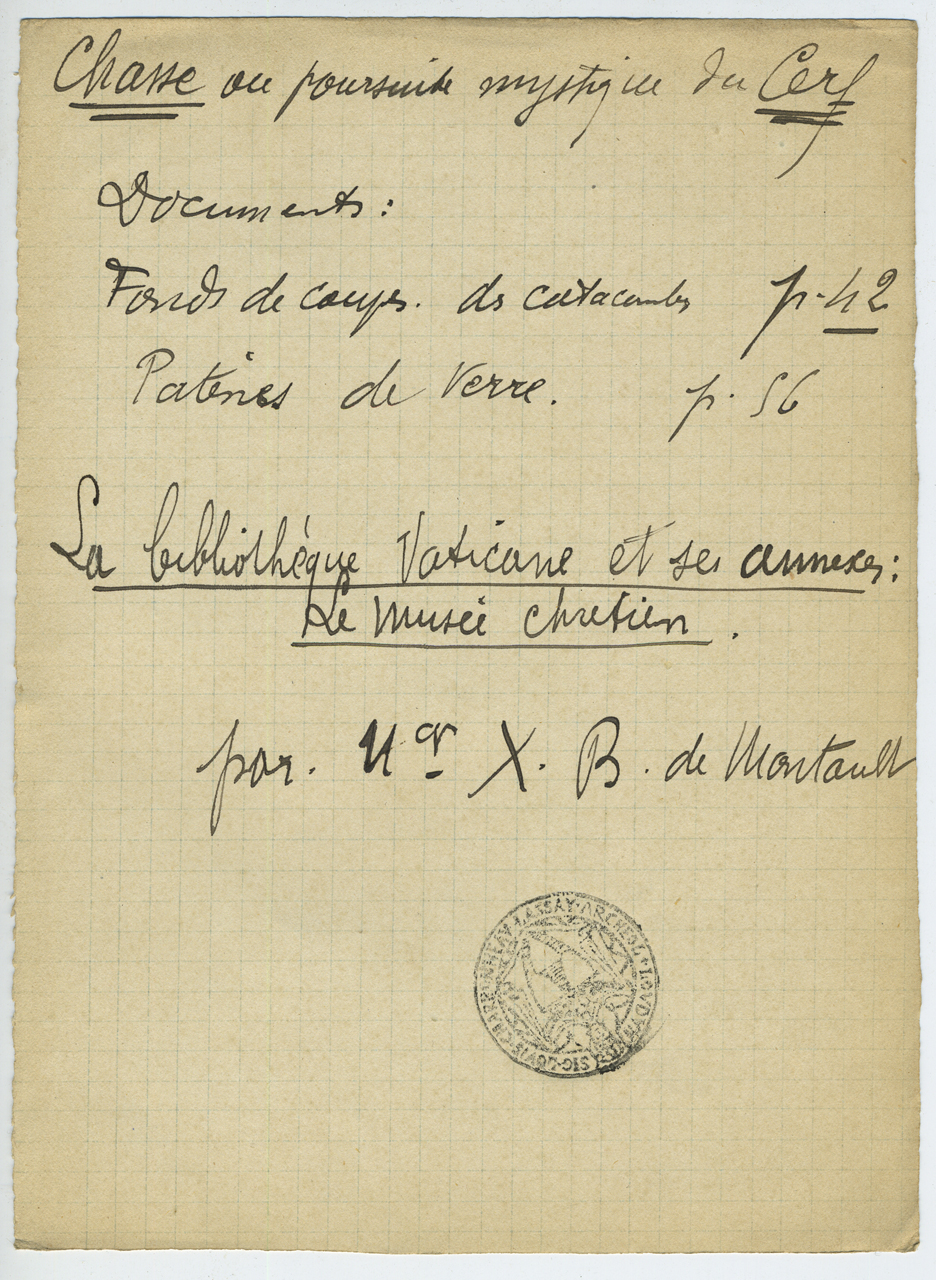 Chasse ou poursuite mystique du Cerf
Documents :
Fonds de coupes. des catacombes p. 42
Patènes de Verre. p. 56
La bibliothèque Vaticane et ses annexes :
Le Musée chrétien.
par. Mgr X. B. de Montault
SIG · LOVIS · CHARBONNEAV · LASSAY · ARCHEOL